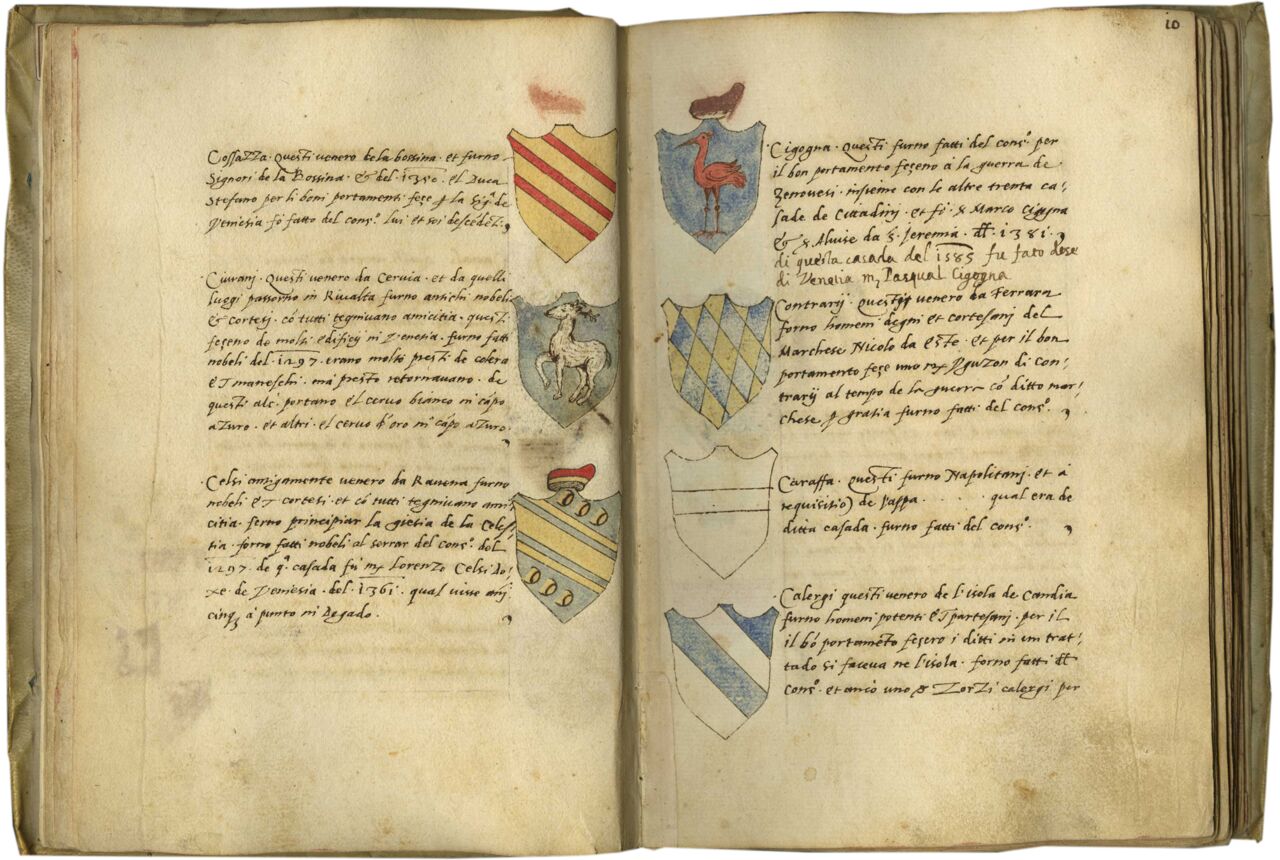 Cossazza · Questi venero de la bossina · et furno
Signori de la Bossina · & del · 1350 · el Duca
Stefano per li boni portamenti feçe ꝑ la Sigᵃ de
Venesia fò fatto del consº. lui et soi descedēti.
Ciurani · Questi venero da Cervia · et da quelli
luogi passorno in Rivalta furno antichi nobeli
& cortesi · cō tutti tegnivano amicitia · questi
feçeno de molti edificij in Venetia · furno fatti
nobeli del · 1297 · erano molti presti de colera
et maneschi · mà presto retornavano · de
questi alcⁱ · portano el cervo bianco in cāpo
azuro · et altri · el cervo d'oro in cāpo azuro.
Celsi antigamente venero da Ravena furno
nobeli et cortesi · et cō tutti tegnivano ami
citia · ferno principiar la giesia de la Celes
tia · forno fatti nobeli al serrar del consº. del
1297 · de qᵃ casada fù mʳ Lorenzo Celsi do,
xe de Venesia · del · 1361 · qual visse anj
cinqȝ à punto in Degado.
10
Cigogna · Questi furno fatti del consº per
il bon portamento feçeno à la guerra de
Zenovesi · insieme con le altre trenta ca,
sade de Cittadinj · et fò · s̄ Marco Cigogna
& s̄ Aluise da S. Jeremia · d̄l · 1381.
di questa casada del 1585 fu fato dose
di Venetia mʳ Pasqual Cigogna
Contrarij · Questi venero da Ferrara
forno homeni degni et cortesani del
Marchese Nicolo da Este · et per il bon
portamento feçe uno mʳ Uguzon di con,
trarij al tempo de la guerra cō ditto mar,
chese ꝑ gratia furno fatti del consº.
Caraffa · questi furno Napolitani · et à
requisitiō de Pappa · · · · · qual era de
ditta casada · furno fatti del consº.
Calergi questi venero de l'isola de Candia
furno homeni potenti et partesanj · per il
il bō portamēto feçero i ditti in un trat,
tado si faceva ne l'isola · forno fatti d̄l
consº · et ancò uno s̄ Zorzi calergi per